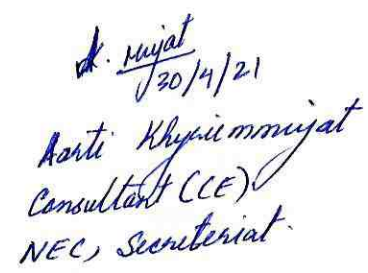 A. Mujat
30/4/21
Aarti Khyriemmujat
Consultant (CE)
NEC, Secreteriat.